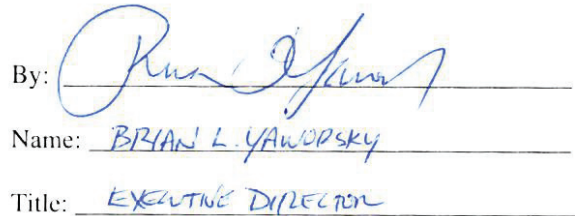 By:
Name: BRIAN L. YAWORSKY
Title: EXECUTIVE DIRECTOR